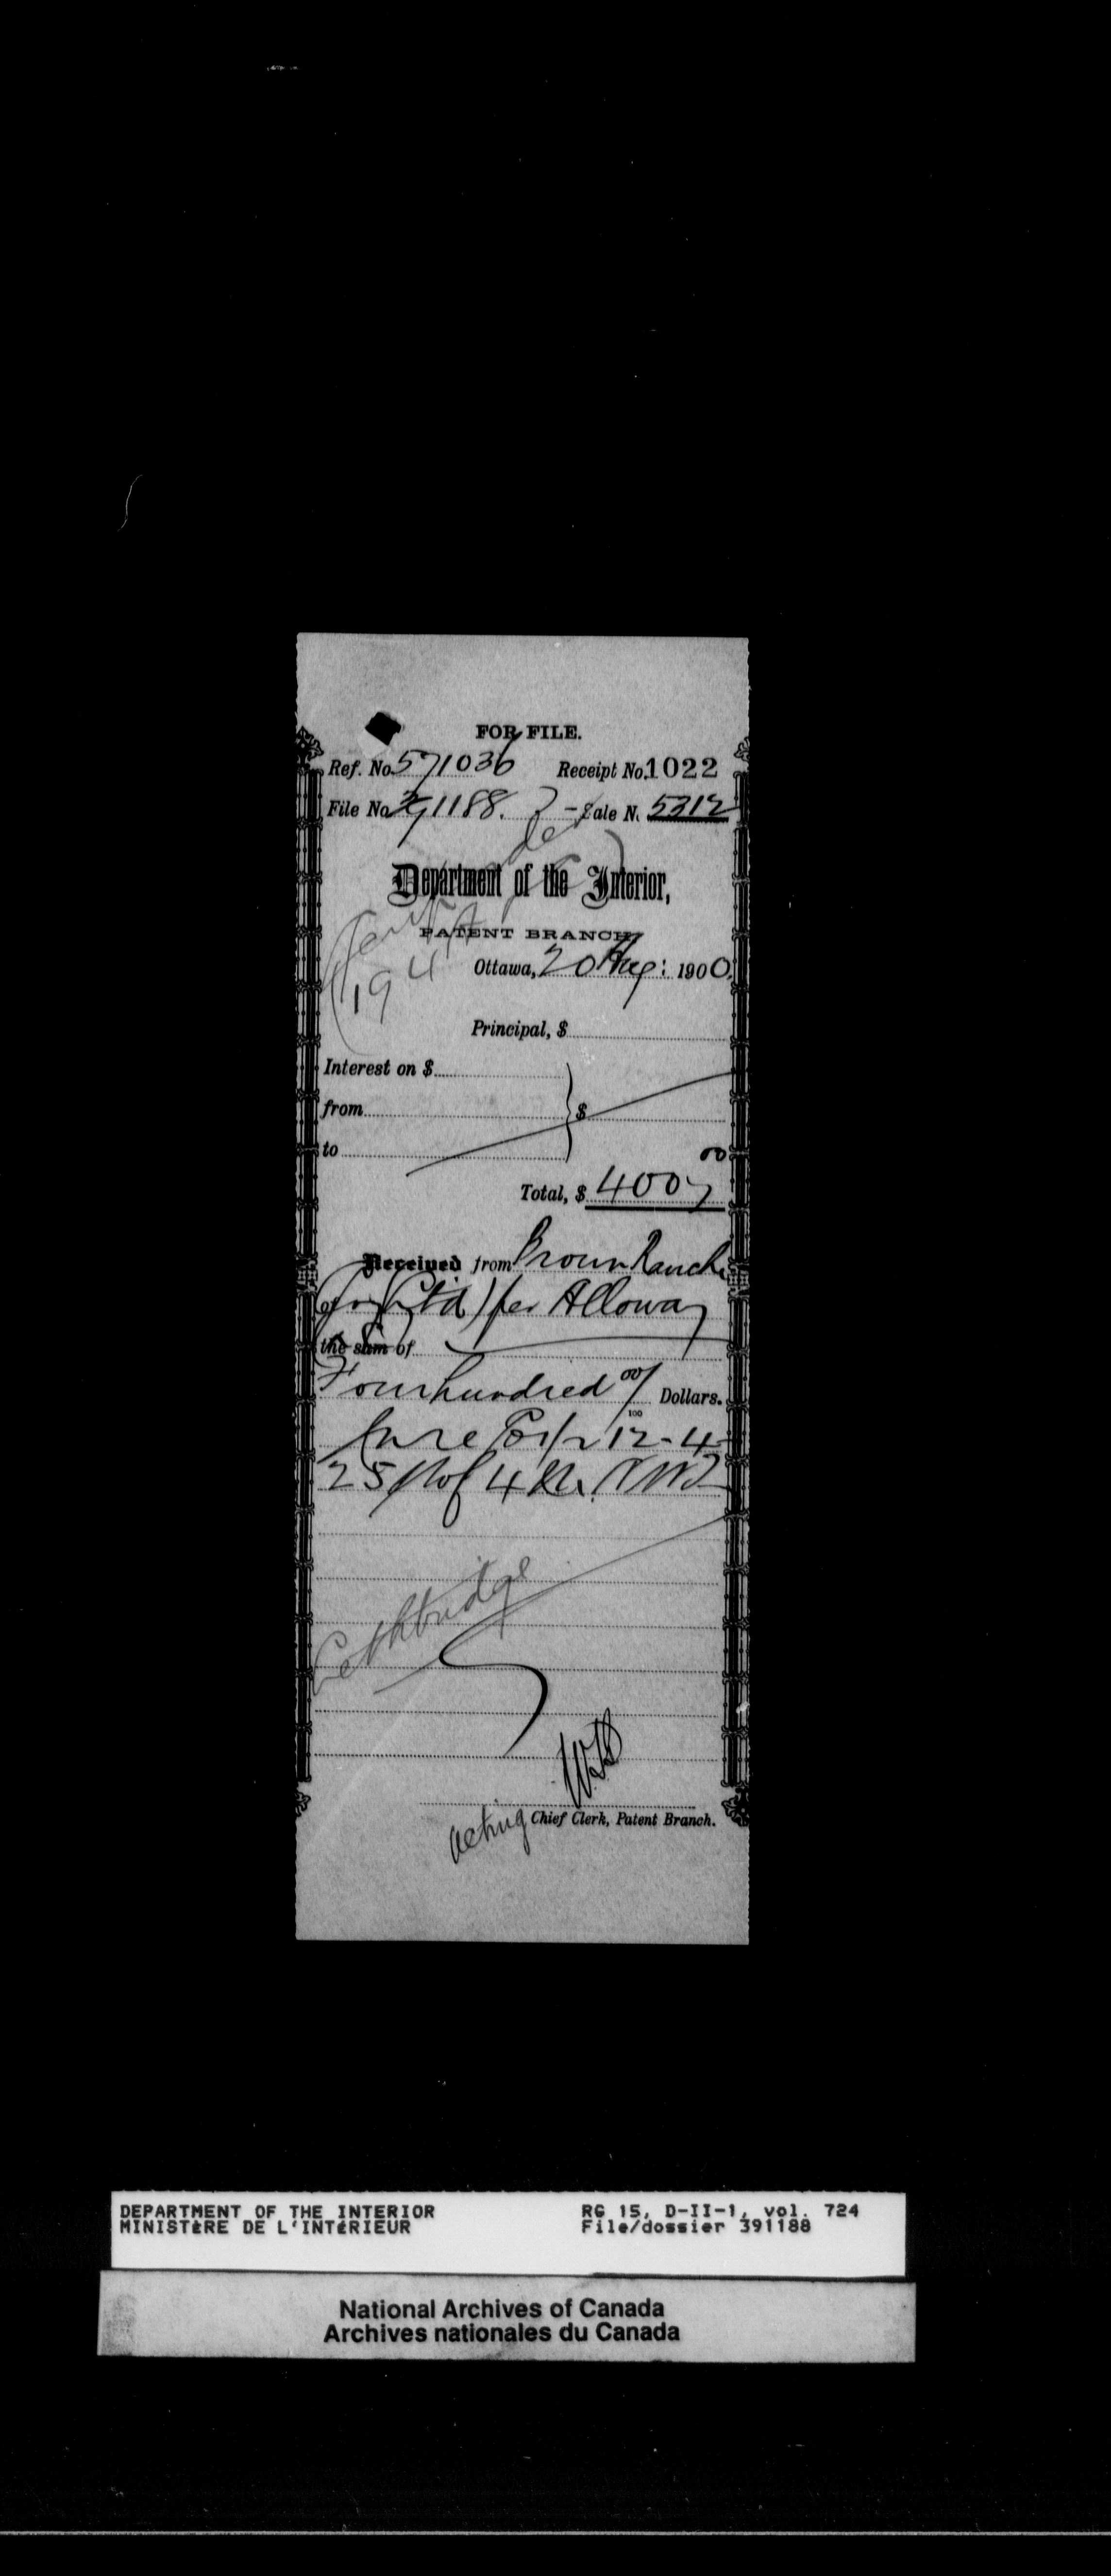 FOR FILE.
Ref. No. 571036 Receipt No. 1022
File No. 391188. 2 - Sale N. 5312
Department of the Interior,
PATENT BRANCH
Ottawa, 20 Aug: 1900.
Principal, $
Interest on $
from $
to
Total, $ 400 00
Received from Brown Ranche
Coy (Ltd) per Alloway
the sum of
Four hundred 00/100 Dollars.
12-4-
25 W of 4
Lethbridge
Acting Chief Clerk, Patent Branch.
DEPARTMENT OF THE INTERIOR RG 15, D-II-1, vol. 724
MINISTÈRE DE L'INTÉRIEUR File/dossier 391188
National Archives of Canada
Archives nationales du Canada